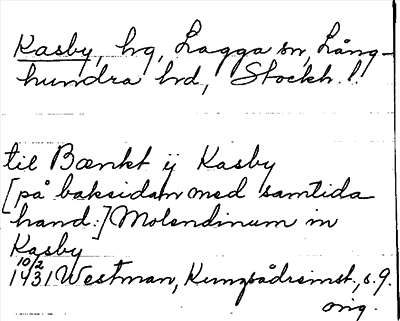 Kasby, hg, Lagga sn, Lång-
hundra hd, Stockh. l.
til Bænkt ij Kasby
[på baksidan med samtida
hand:] Molendinum in
Kasby
10/2
1431 Westman, Kungsådreinst., s. 9.
orig.